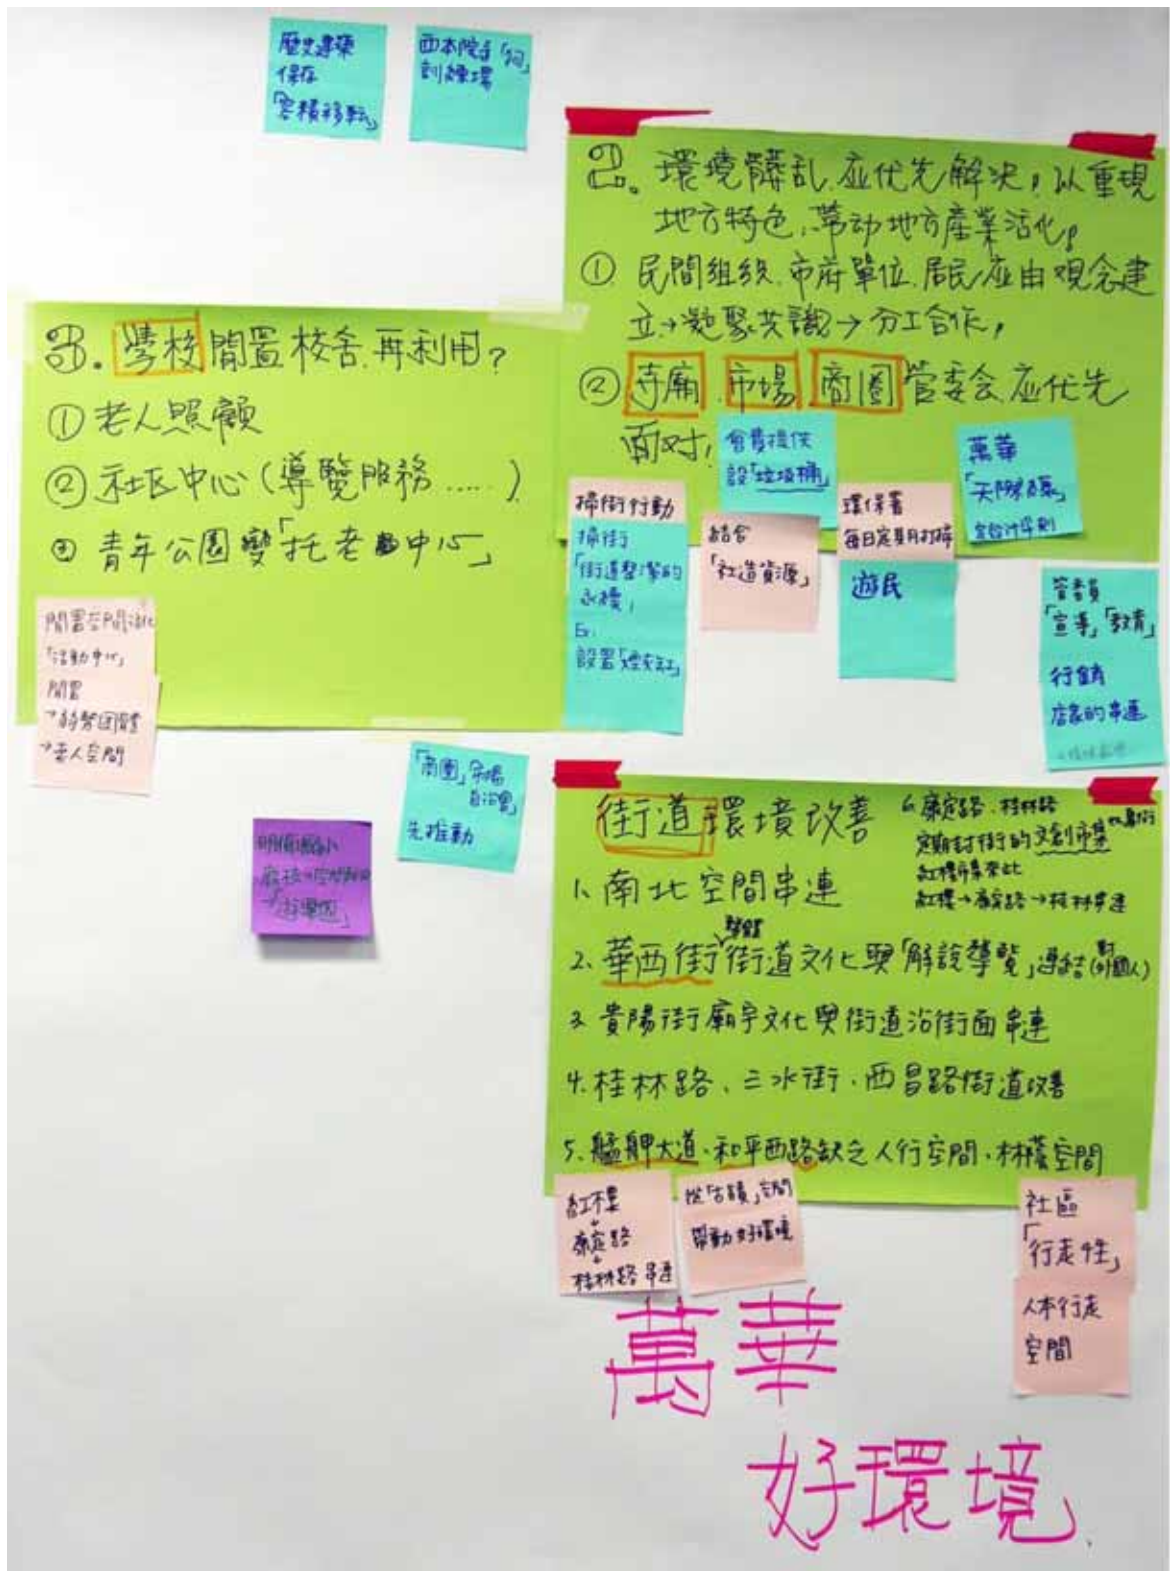 歷史建築
保存
「容積移転」
西本院寺
訓練場
2. 環境髒乱.应优先解決，以重現
地方特色，帶动地方產業活化。
① 民間組织.市府單位.居民应由观念建
立→凝聚共識→分工合作，
② 寺廟 市場 商圈 管委会.应优先
面对！
會費提供
設「垃圾桶」
萬華
3. 學校閒置校舍.再利用？
① 老人照顧
② 社区中心(導覽服務.....)
③ 青年公園變「托老中心」
掃街行動
掃街
「街道整潔的
永續」
Ex.
設置「煙灰缸」
結合
「社造資源」
環保署
每日定期打掃
遊民
「宣導」「教育」
行銷
店家的串連
閒置空間活化
「活動中心」
閒置
→老人空間
「商圈」市場
自治會
先推動
街道環境改善
1. 南北空間串連
2. 華西街街道文化與「解說導覽」連結(對外國人)
3. 貴陽街廟宇文化與街道沿街面串連
4. 桂林路、三水街、西昌路街道改善
5. 艋舺大道、和平西路缺乏人行空間、林蔭空間
6. 康定路、桂林路
定期封街的文創市集
紅樓→康定路→桂林串連
紅樓
康定路
桂林路 串連
從「古蹟」空間
帶動好環境
社區
「行走性」
人本行走
空間
萬華
好環境